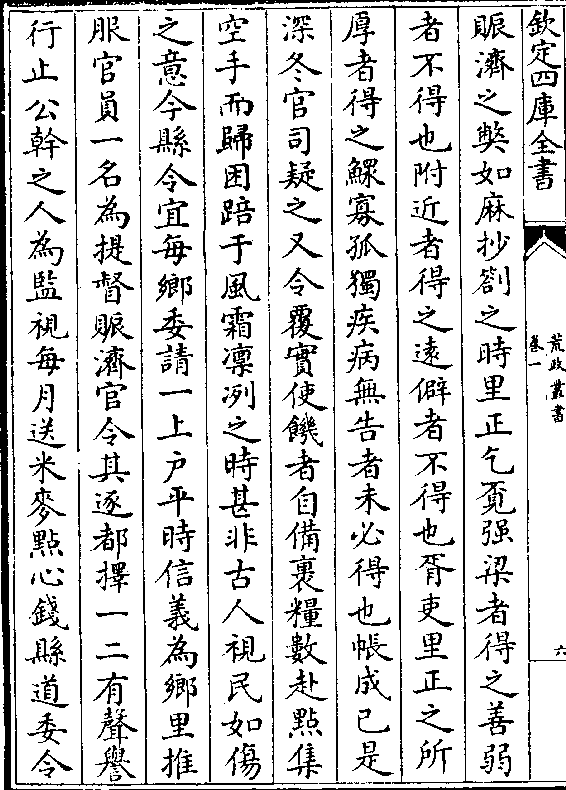 欽定四庫全書
荒政叢書
卷一
六
賑濟之弊如麻抄劄之時里正乞覔强梁者得之善弱
者不得也附近者得之遠僻者不得也胥吏里正之所
厚者得之鰥寡孤獨疾病無告者未必得也帳成已是
深冬官司疑之又令覆實使饑者自備裹糧數赴點集
空手而歸困踣于風霜凛冽之時甚非古人視民如傷
之意今縣令宜每鄉委請一上户平時信義為鄉里推
服官員一名為提督賑濟官令其逐都擇一二有聲譽
行止公幹之人為監視每月送米麥點心錢縣道委令